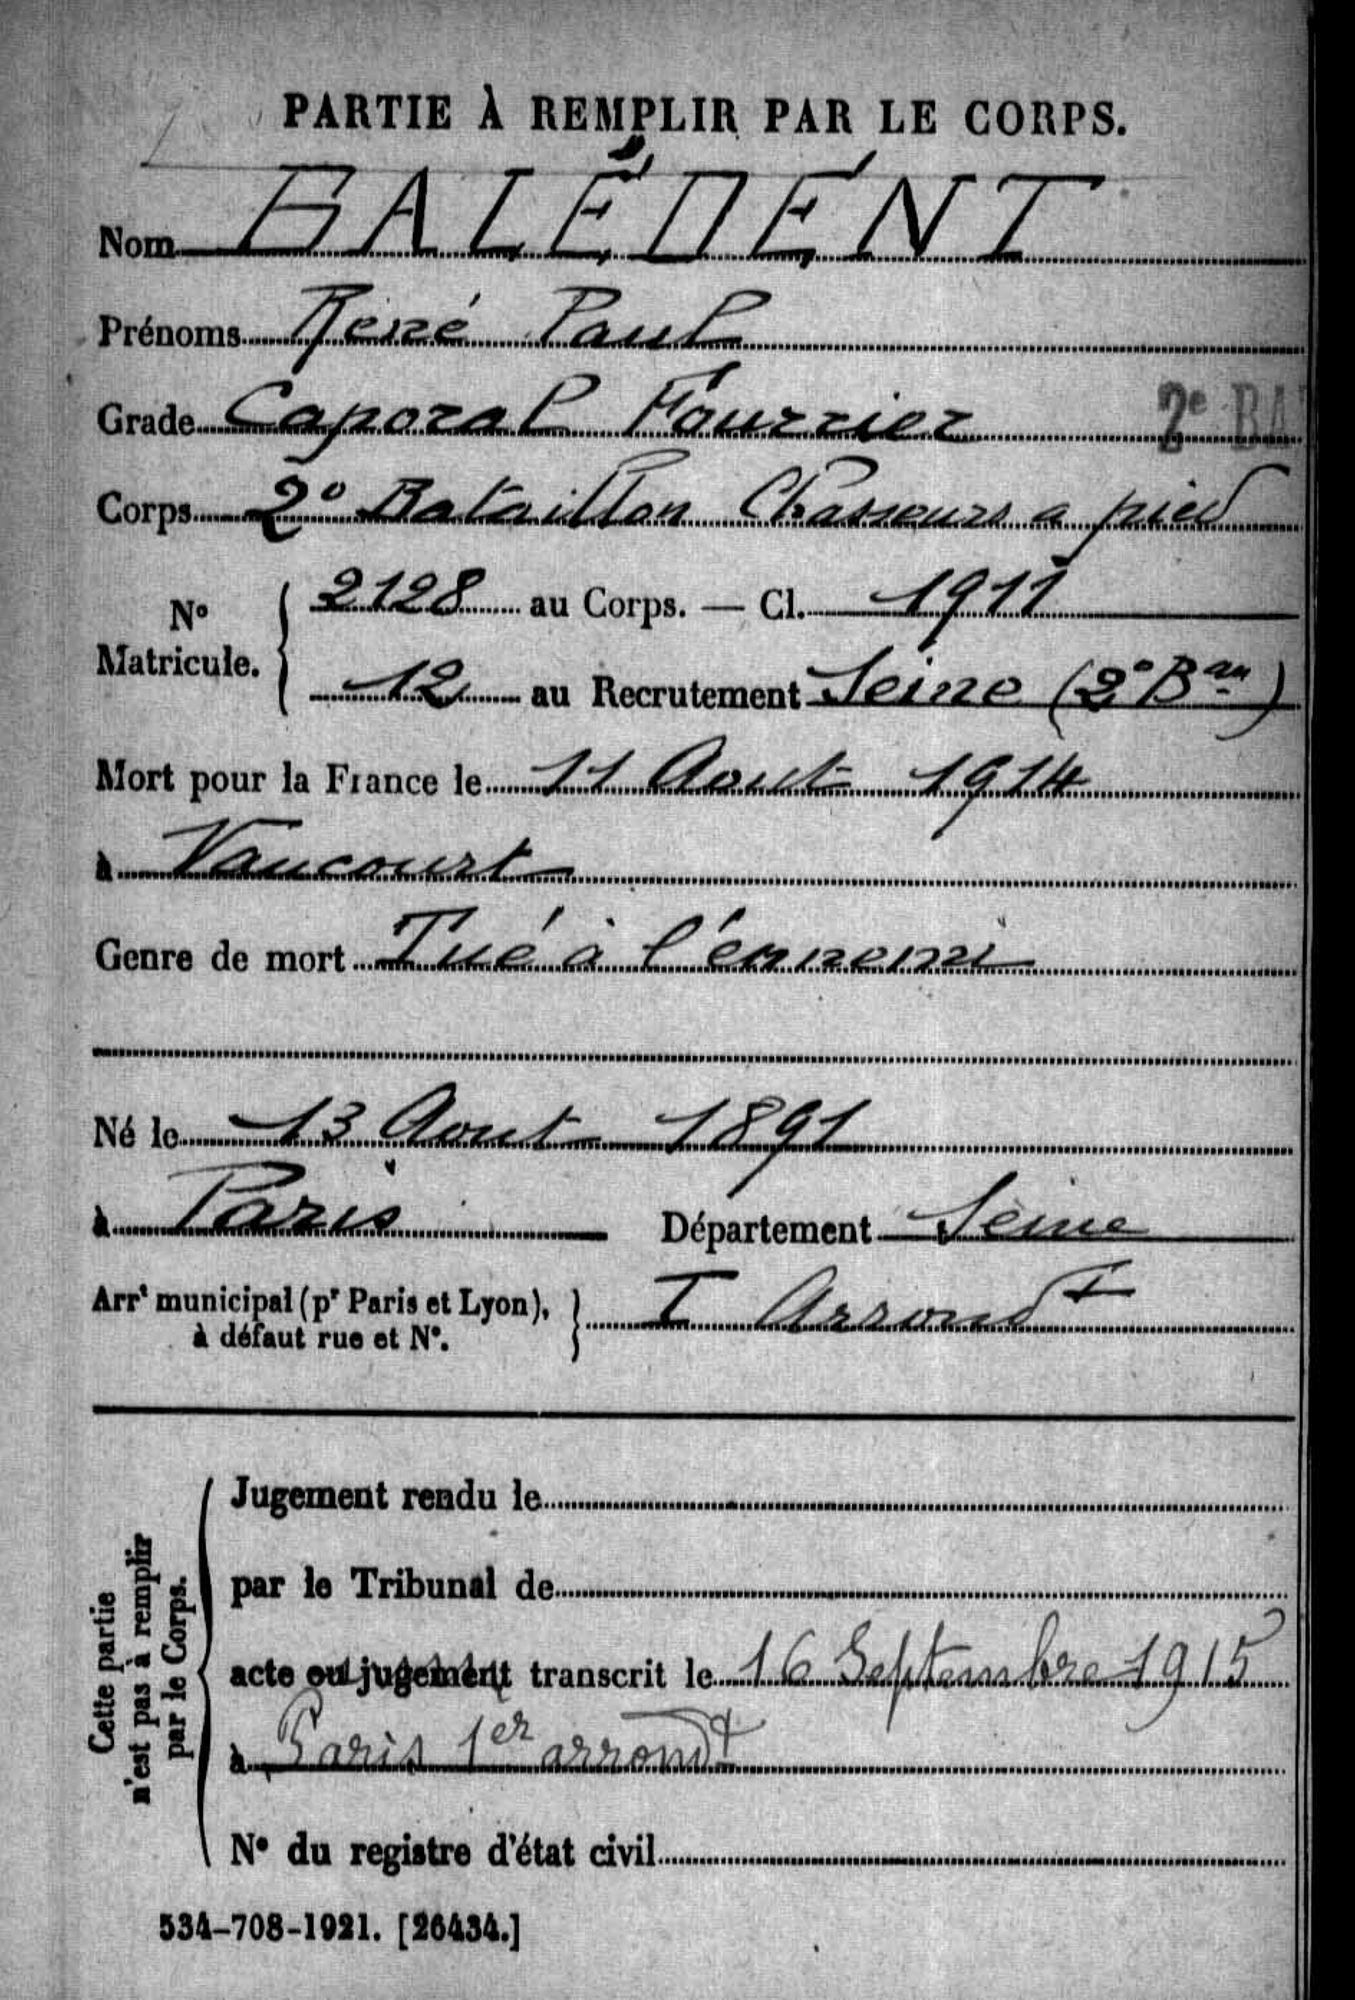 PARTIE À REMPLIR PAR LE CORPS.
Nom BALÉDENT
Prénoms René Paul
Grade Caporal Fourrier 2e BA
Corps 2° Bataillon Chasseurs a pied
N° Matricule. { 2128 au Corps. — Cl. 1911
12 au Recrutement Seine (2° Bau)
Mort pour la France le 11 Aout 1914
à Vaucourt
Genre de mort Tué à l'ennemi
Né le 13 Aout 1891
à Paris Département Seine
Arrt municipal (pr Paris et Lyon), à défaut rue et N°. } I Arrondt
Cette partie n'est pas à remplir par le Corps.
Jugement rendu le
par le Tribunal de
acte ou jugement transcrit le 16 Septembre 1915
à Paris 1er arrondt
N° du registre d'état civil
534-708-1921. [26434.]